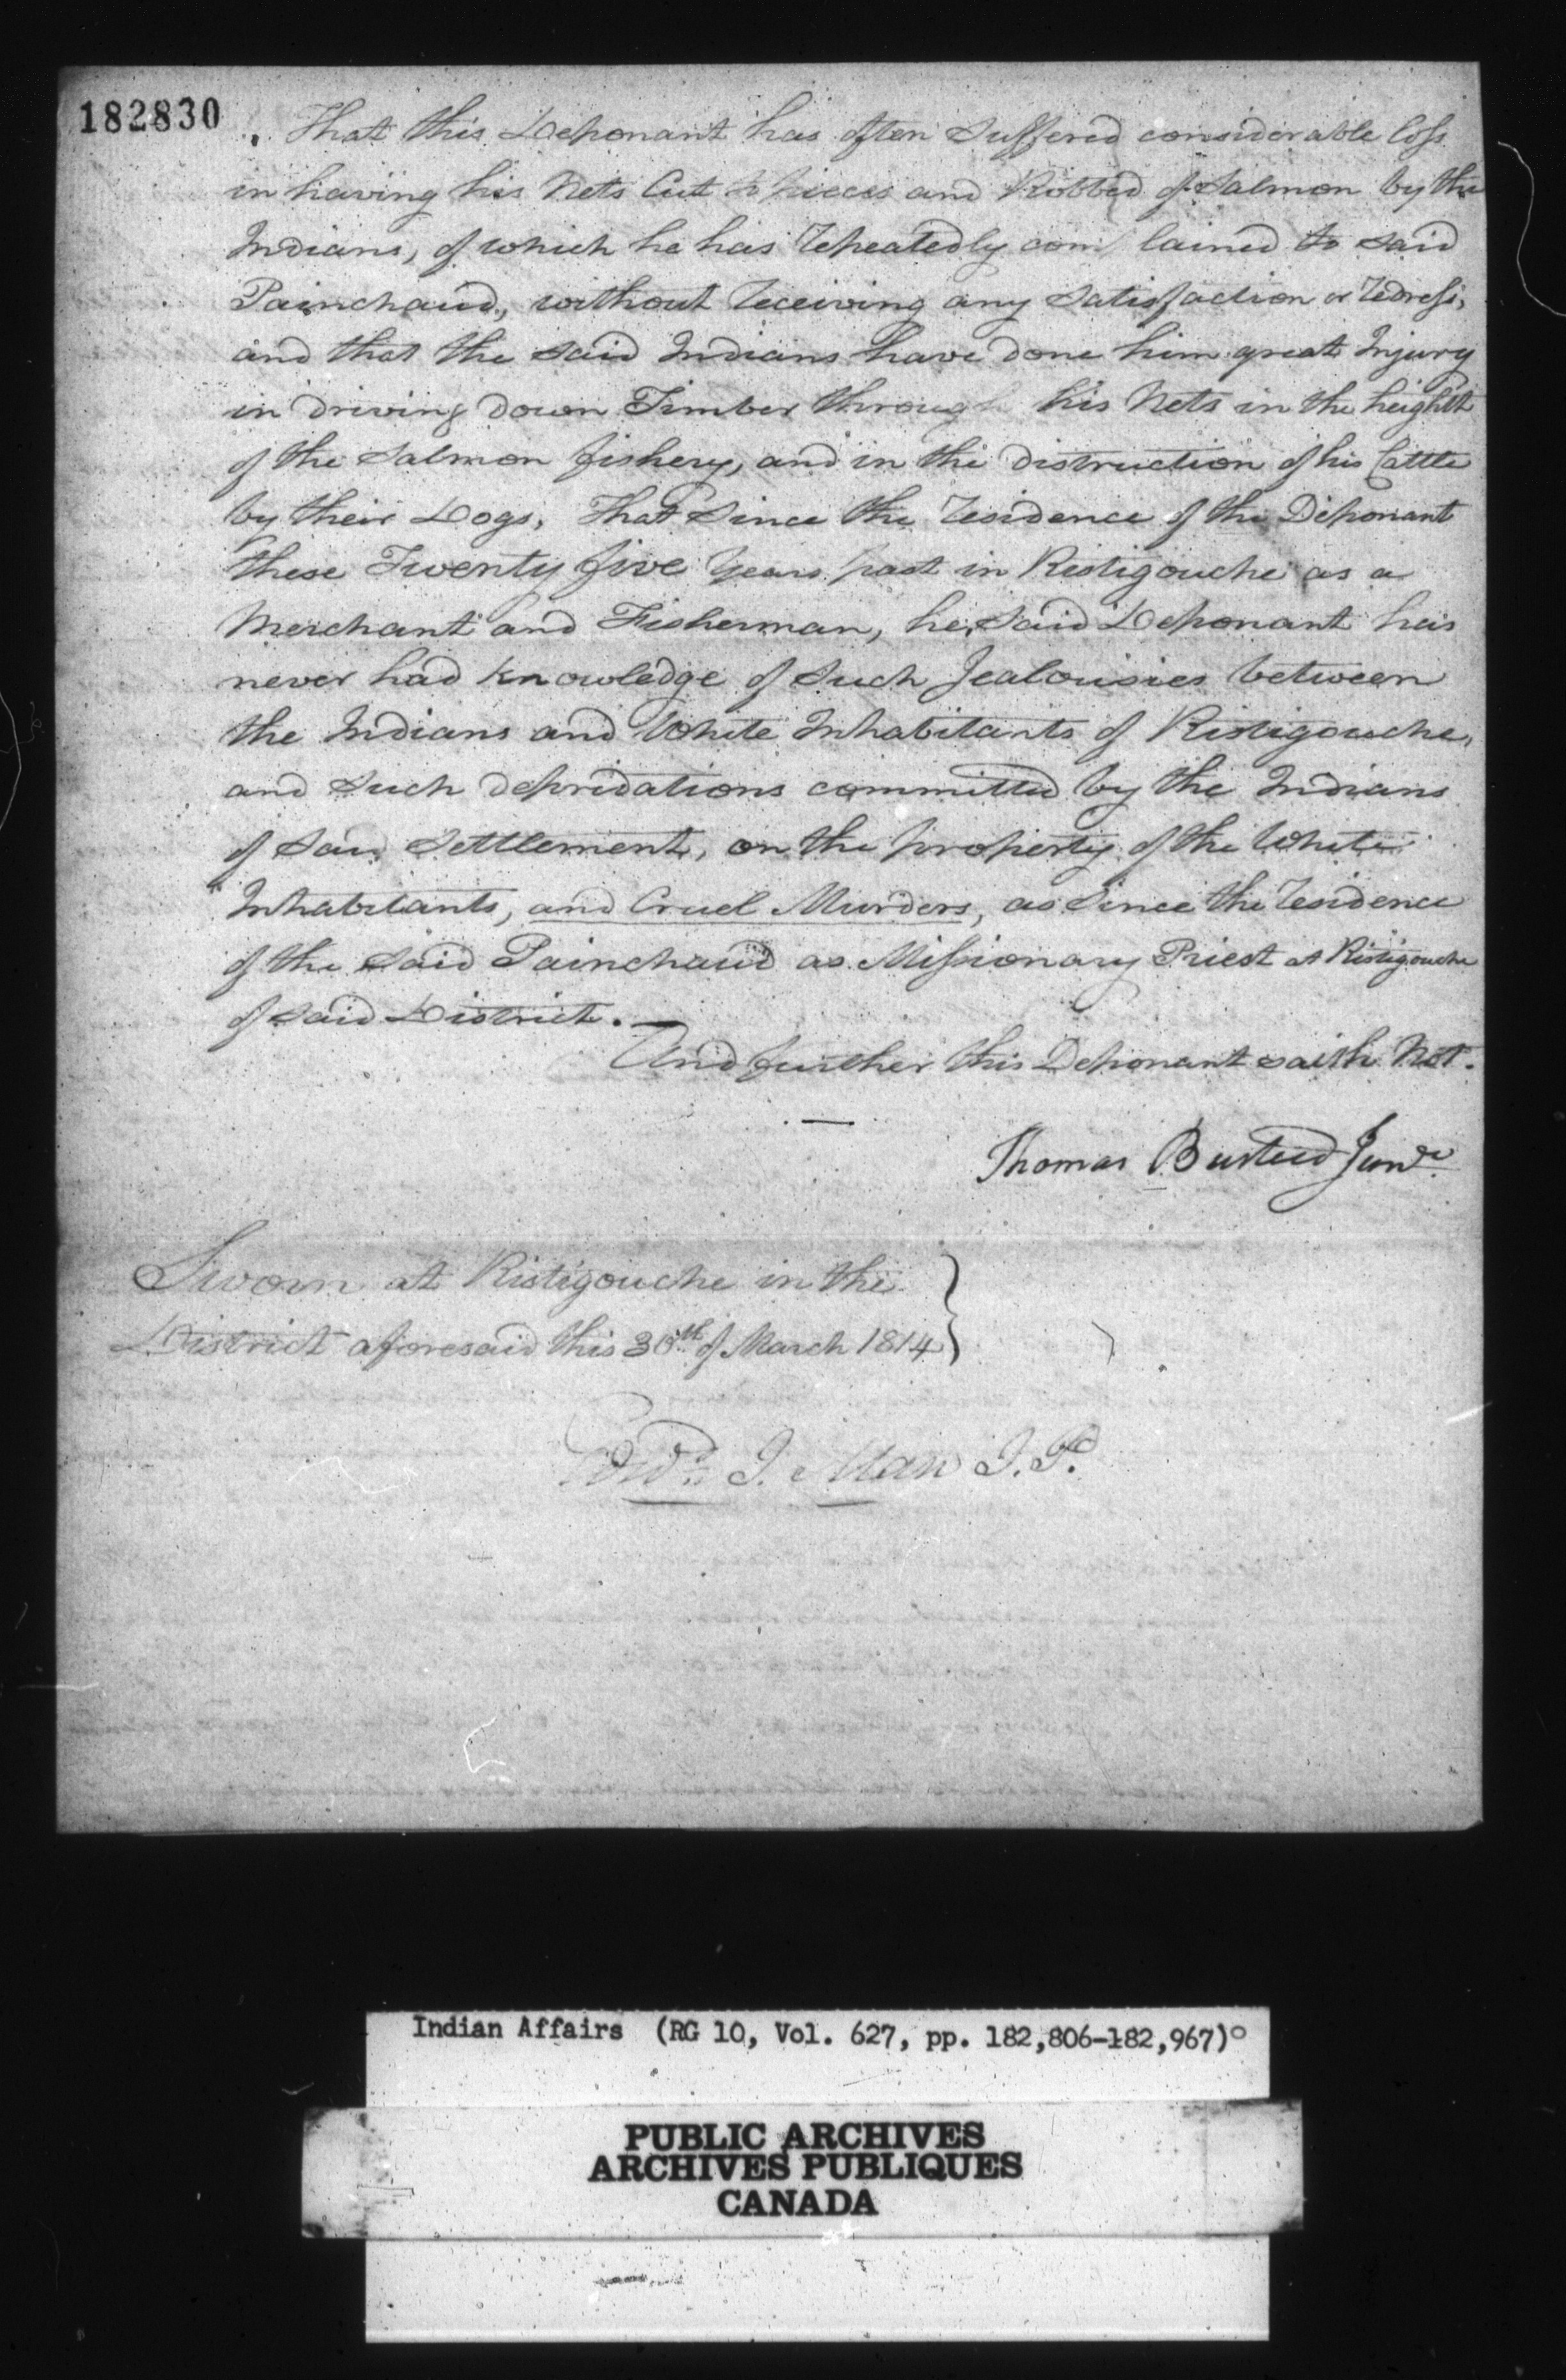 182830
That this Deponant has often Suffered considerable loss
in having his Nets Cut to pieces and Robbed of Salmon by the
Indians, of which he has repeatedly com lained to said
Painchaud, without receiving any Satisfaction or redress,
and that the said Indians have done him great Injury
in driving down Timber through his Nets in the heighth
of the Salmon fishery, and in the distruction of his Cattle
by their Dogs, That Since the residence of the Deponant
these Twenty five Years past in Ristigouche as a
Merchant and Fisherman, he, said Deponant has
never had knowledge of Such Jealousies between
the Indians and White Inhabitants of Ristigouche,
and Such depridations committed by the Indians
of Said Settlement, on the property of the White
Inhabitants, and Cruel Murders, as Since the residence
of the Said Painchaud as Missionary Priest at Ristigouche
of said District.
And further this Deponant saith Not.
Thomas Busteed Junr
Sworn at Ristigouche in the
District aforesaid this 30th of March 1814
Edwd I. Man J.P.
Indian Affairs (RG 10, Vol. 627, pp. 182,806-182,967)
PUBLIC ARCHIVES
ARCHIVES PUBLIQUES
CANADA